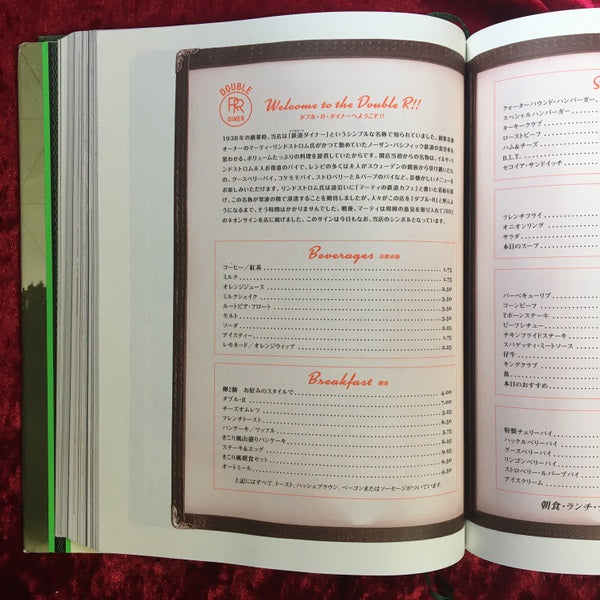 DOUBLE
RR
DINER
Welcome to the Double R!!
ダブル・R・ダイナーへようこそ!!
1938年の創業時、当店は「鉄道ダイナー」というシンプルな名称で知られていました。創業者兼
オーナーのマーティ・リンドストロム氏がかつて勤めていたノーザン・パシフィック鉄道の食堂車を
思わせる、ボリュームたっぷりの料理を提供していたからです。開店当初からの名物は、イルサ・リ
ンドストロム夫人お得意のパイで、レシピの多くは夫人がスウェーデンの親族から受け継いだも
の。グースベリーパイ、コケモモパイ、ストロベリー&ルバーブのパイなど、昔懐かしいメニューを
お楽しみいただけます。リンドストロム氏は遊び心に「マーティの鉄道カフェ」と書いた看板を掲
げ、この名称が常連の間で浸透することを期待しましたが、人々がこの店を「ダブル・R」と呼ぶよ
うになるまで、そう時間はかかりませんでした。戦後、マーティは周囲の意見を取り入れて「RR」
のネオンサインを店に掲げました。このサインは今日もなお、当店のシンボルとなっています。
Beverages お飲み物
コーヒー/紅茶 1.75
ミルク 1.75
オレンジジュース 2.50
ミルクシェイク 3.50
ルートビア・フロート 3.50
モルト 3.50
ソーダ 2.25
アイスティー 1.75
レモネード/オレンジウィップ 2.25
Breakfast 朝食
卵2個 お好みのスタイルで 4.00
ダブル・R 7.00
チーズオムレツ 5.95
フレンチトースト 6.50
パンケーキ/ワッフル 5.75
きこり風山盛りパンケーキ 6.25
ステーキ&エッグ 9.95
きこり風朝食セット 9.50
オートミール 4.50
上記にはすべて、トースト、ハッシュブラウン、ベーコンまたはソーセージがついています。
S
クォーターパウンド・ハンバーガー、
スペシャルハンバーガー
ターキークラブ
ローストビーフ
ハム&チーズ
B.L.T.
セコイア・サンドイッチ
フレンチフライ
オニオンリング
サラダ
本日のスープ
バーベキューリブ
コーンビーフ
Tボーンステーキ
ビーフシチュー
チキンフライドステーキ
スパゲッティ・ミートソース
仔牛
キングクラブ
魚
本日のおすすめ
特製チェリーパイ
ハックルベリーパイ
グースベリーパイ
リンゴンベリーパイ
ストロベリー・ルバーブパイ
アイスクリーム
朝食・ランチ・